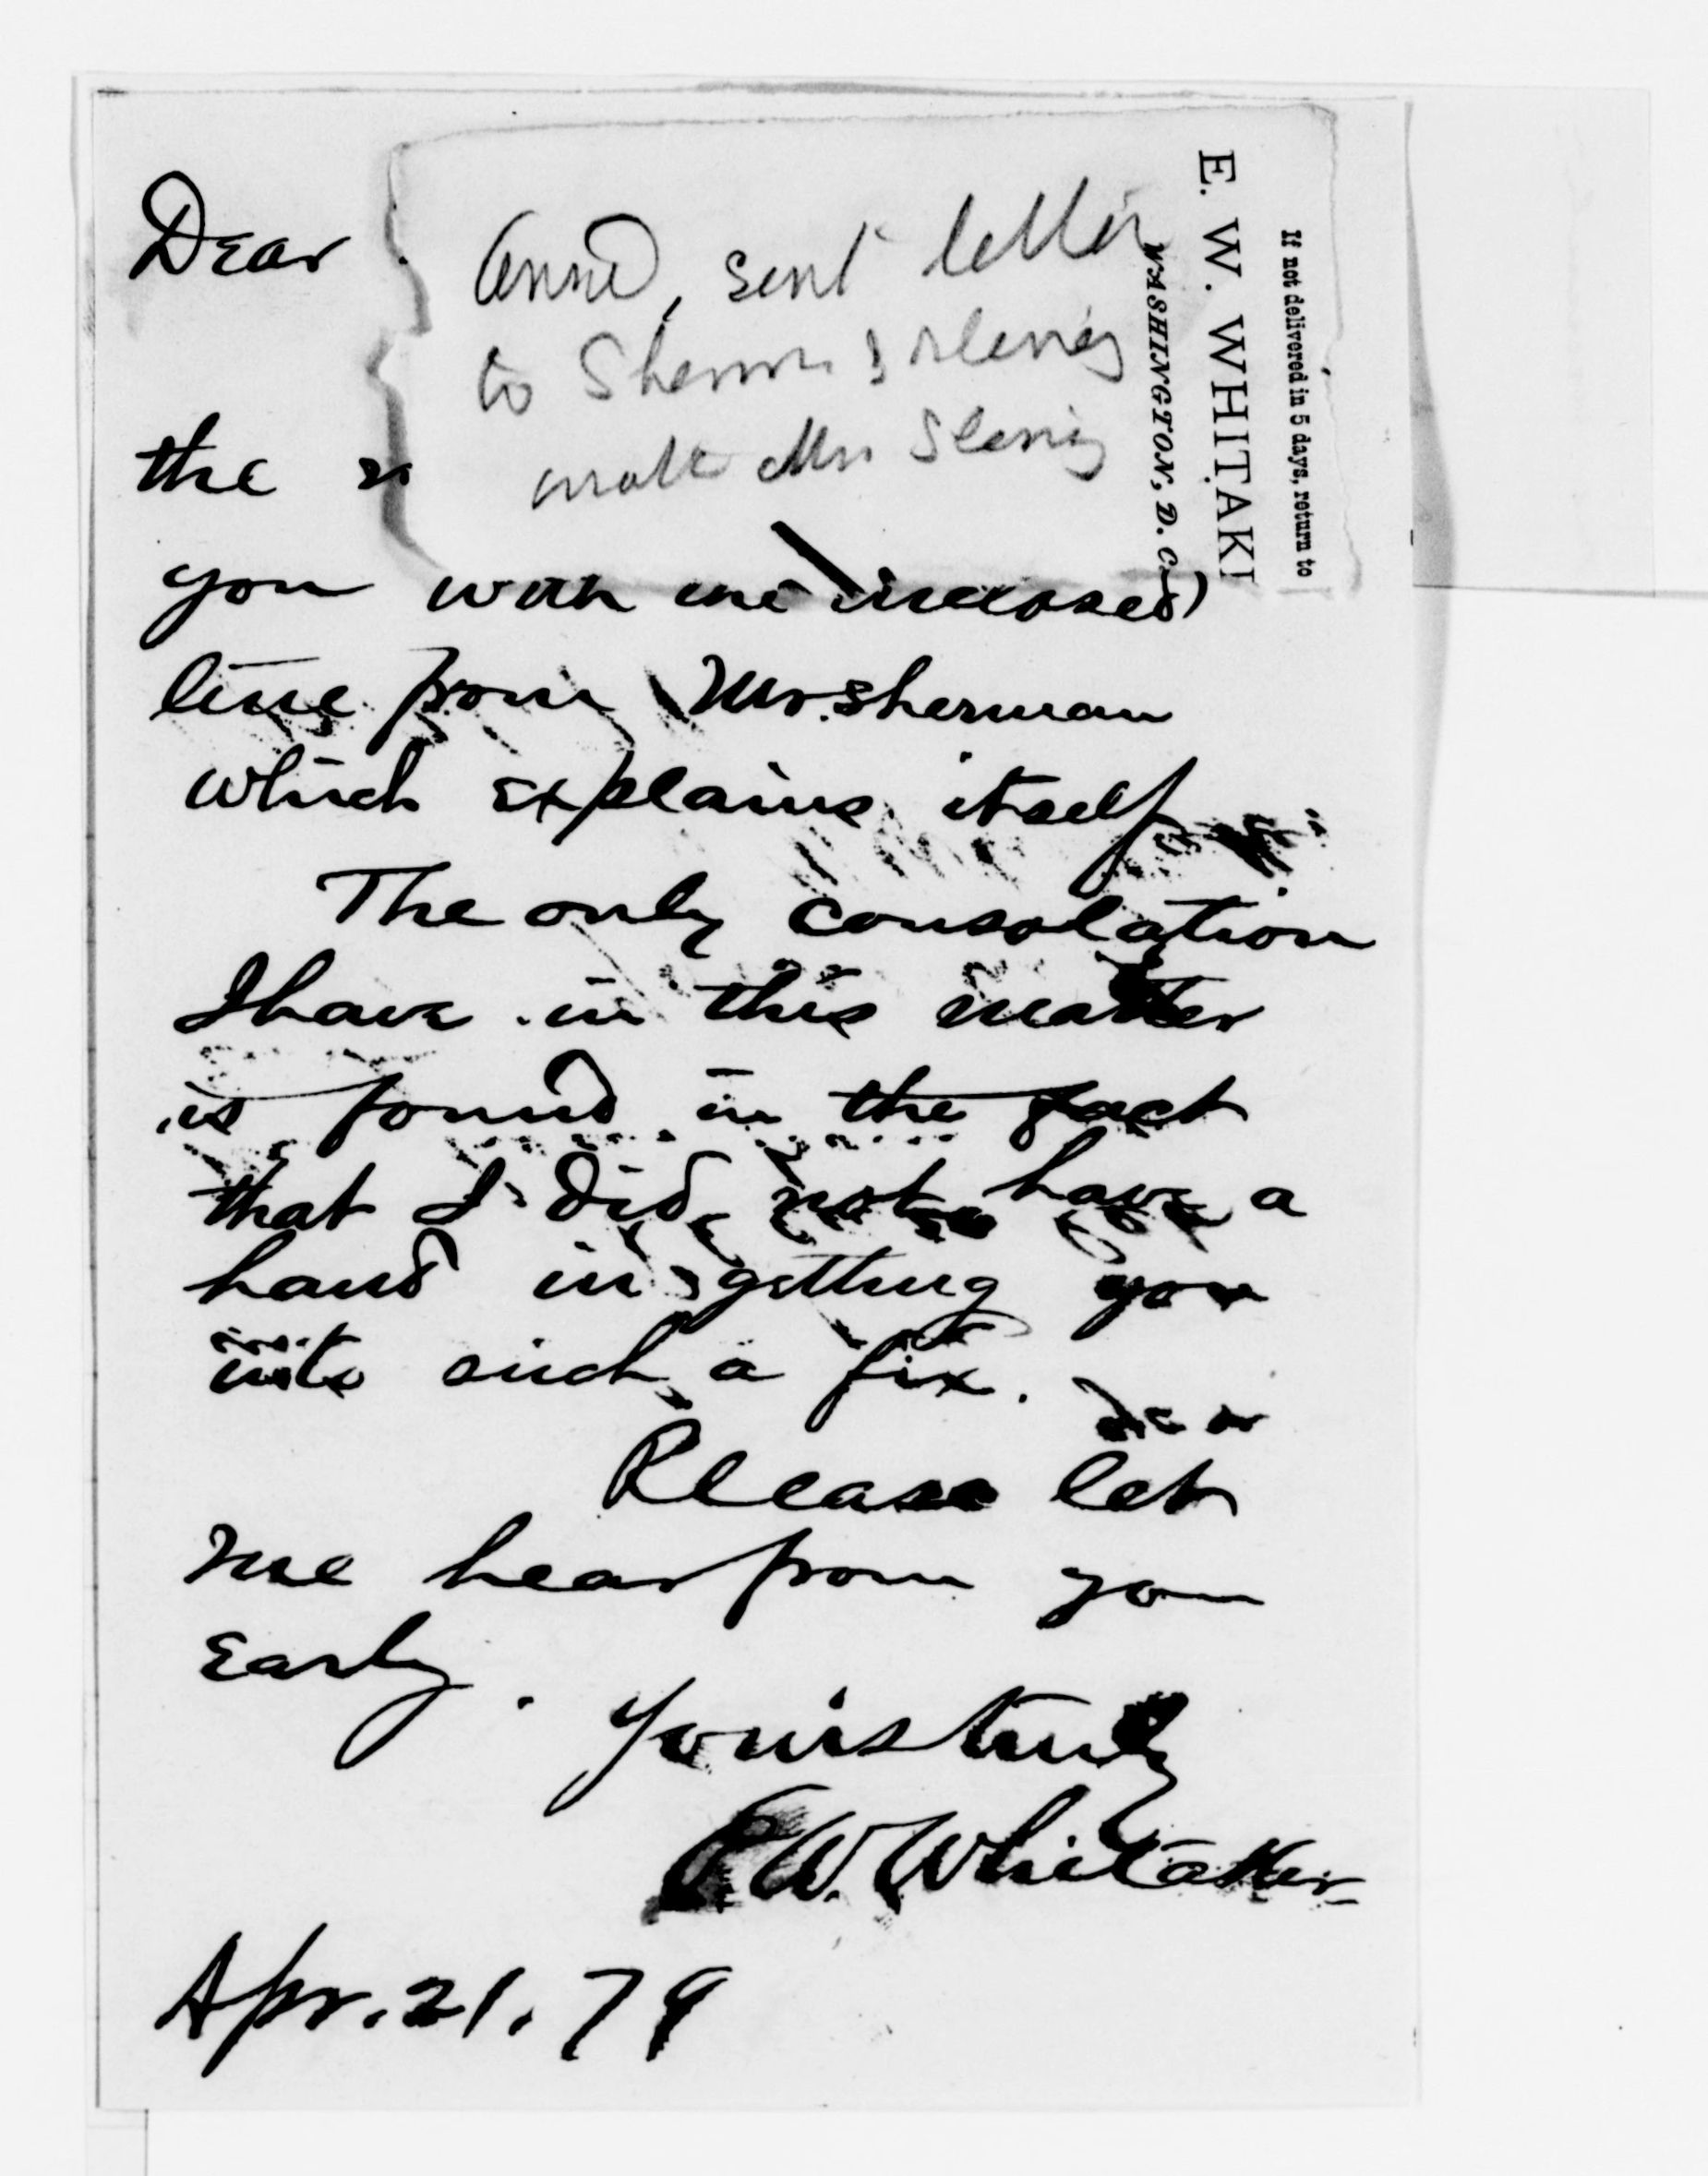 Dear
sent letter
to Sherman &
Mrs
If not delivered in 5 days, return to
E. W. WHITAKE
WASHINGTON, D. C.
the
you with the inclosed
line from Mr. Sherman
which explains itself
The only consolation
I have in this matter
is found in the fact
that I did not have a
hand in getting you
into such a fix.
Please let
me hear from you
Early.
Yours truly
E. W. Whitaker
Apr. 21. 79